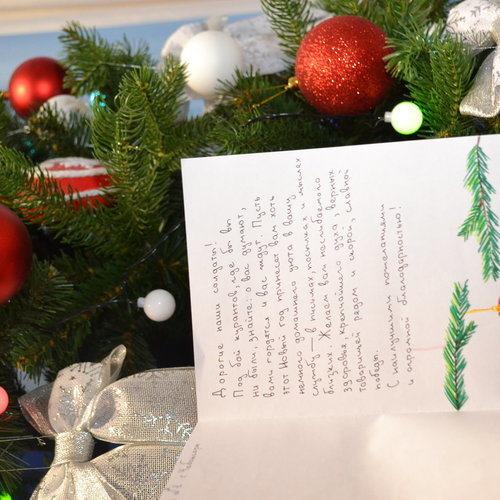 Дорогие наши солдаты!
Под бой курантов, где бы вы
ни были, знайте: о вас думают,
вами гордятся и вас ждут. Пусть
этот Новый год принесет вам хоть
немного домашнего уюта в вашу
службу — в письмах, посылках и мыслях
близких. Желаем вам несгибаемого
здоровья, крепчайшего духа, верных
товарищей рядом и скорой, славной
победы.
С наилучшими пожеланиями
и огромной благодарностью!